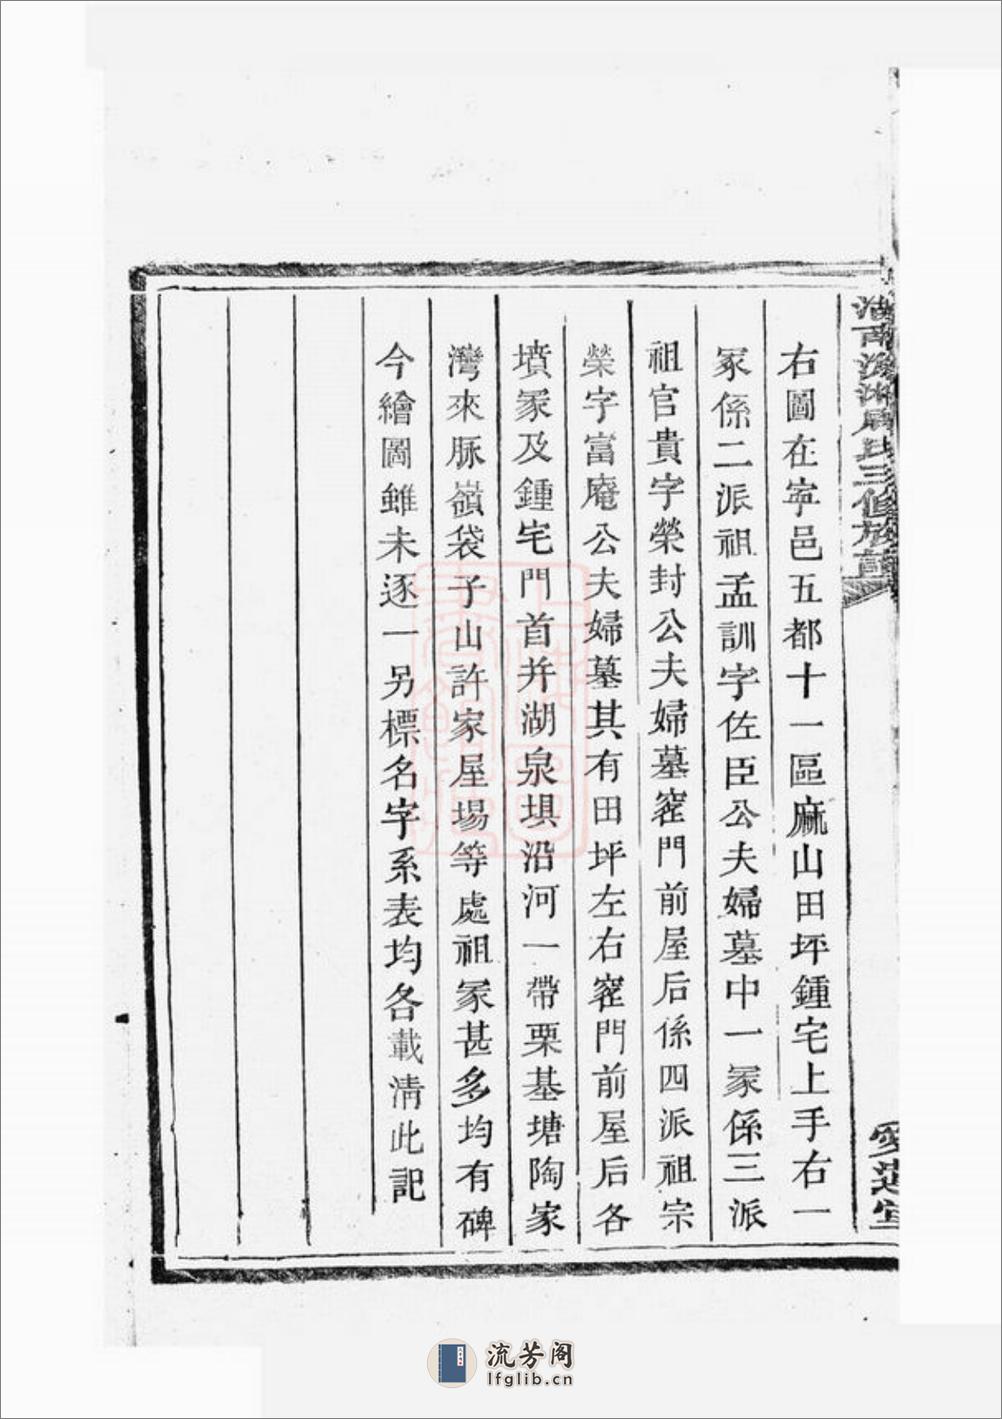 右圖在寧邑五都十一區麻山田坪鍾宅上手右一
冡係二派祖孟訓字佐臣公夫婦墓中一冡係三派
祖官貴字榮封公夫婦墓窰門前屋后係四派祖宗
榮字富庵公夫婦墓其有田坪左右窰門前屋后各
墳冡及鍾宅門首并湖泉垻沿河一帶栗基塘陶家
灣來脉嶺袋子山許家屋場等處祖冡甚多均有碑
今繪圖雖未逐一另標名字系表均各載清此記
愛蓮堂
流芳阁
lfglib.cn